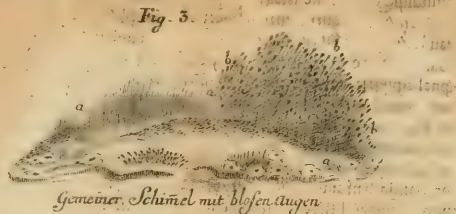 Fig. 3.
b
b
c
a
a
b
a
Gemeiner. Schim̄el mit blosen Augen